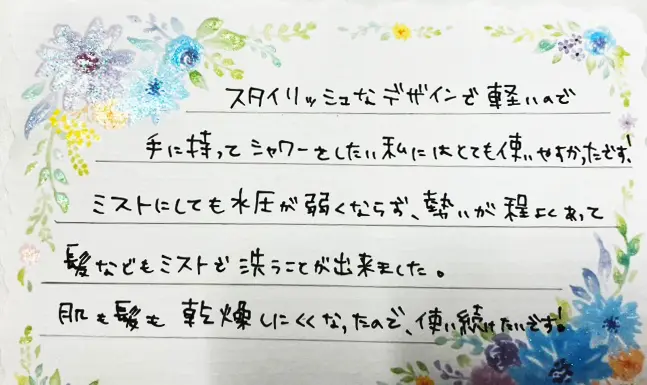 スタイリッシュなデザインで軽いので
手に持ってシャワーをしたい私にはとても使いやすかったです!
ミストにしても水圧が弱くならず、勢いが程よくあって
髪などもミストで洗うことが出来ました。
肌も髪も乾燥しにくくなったので、使い続けたいです!